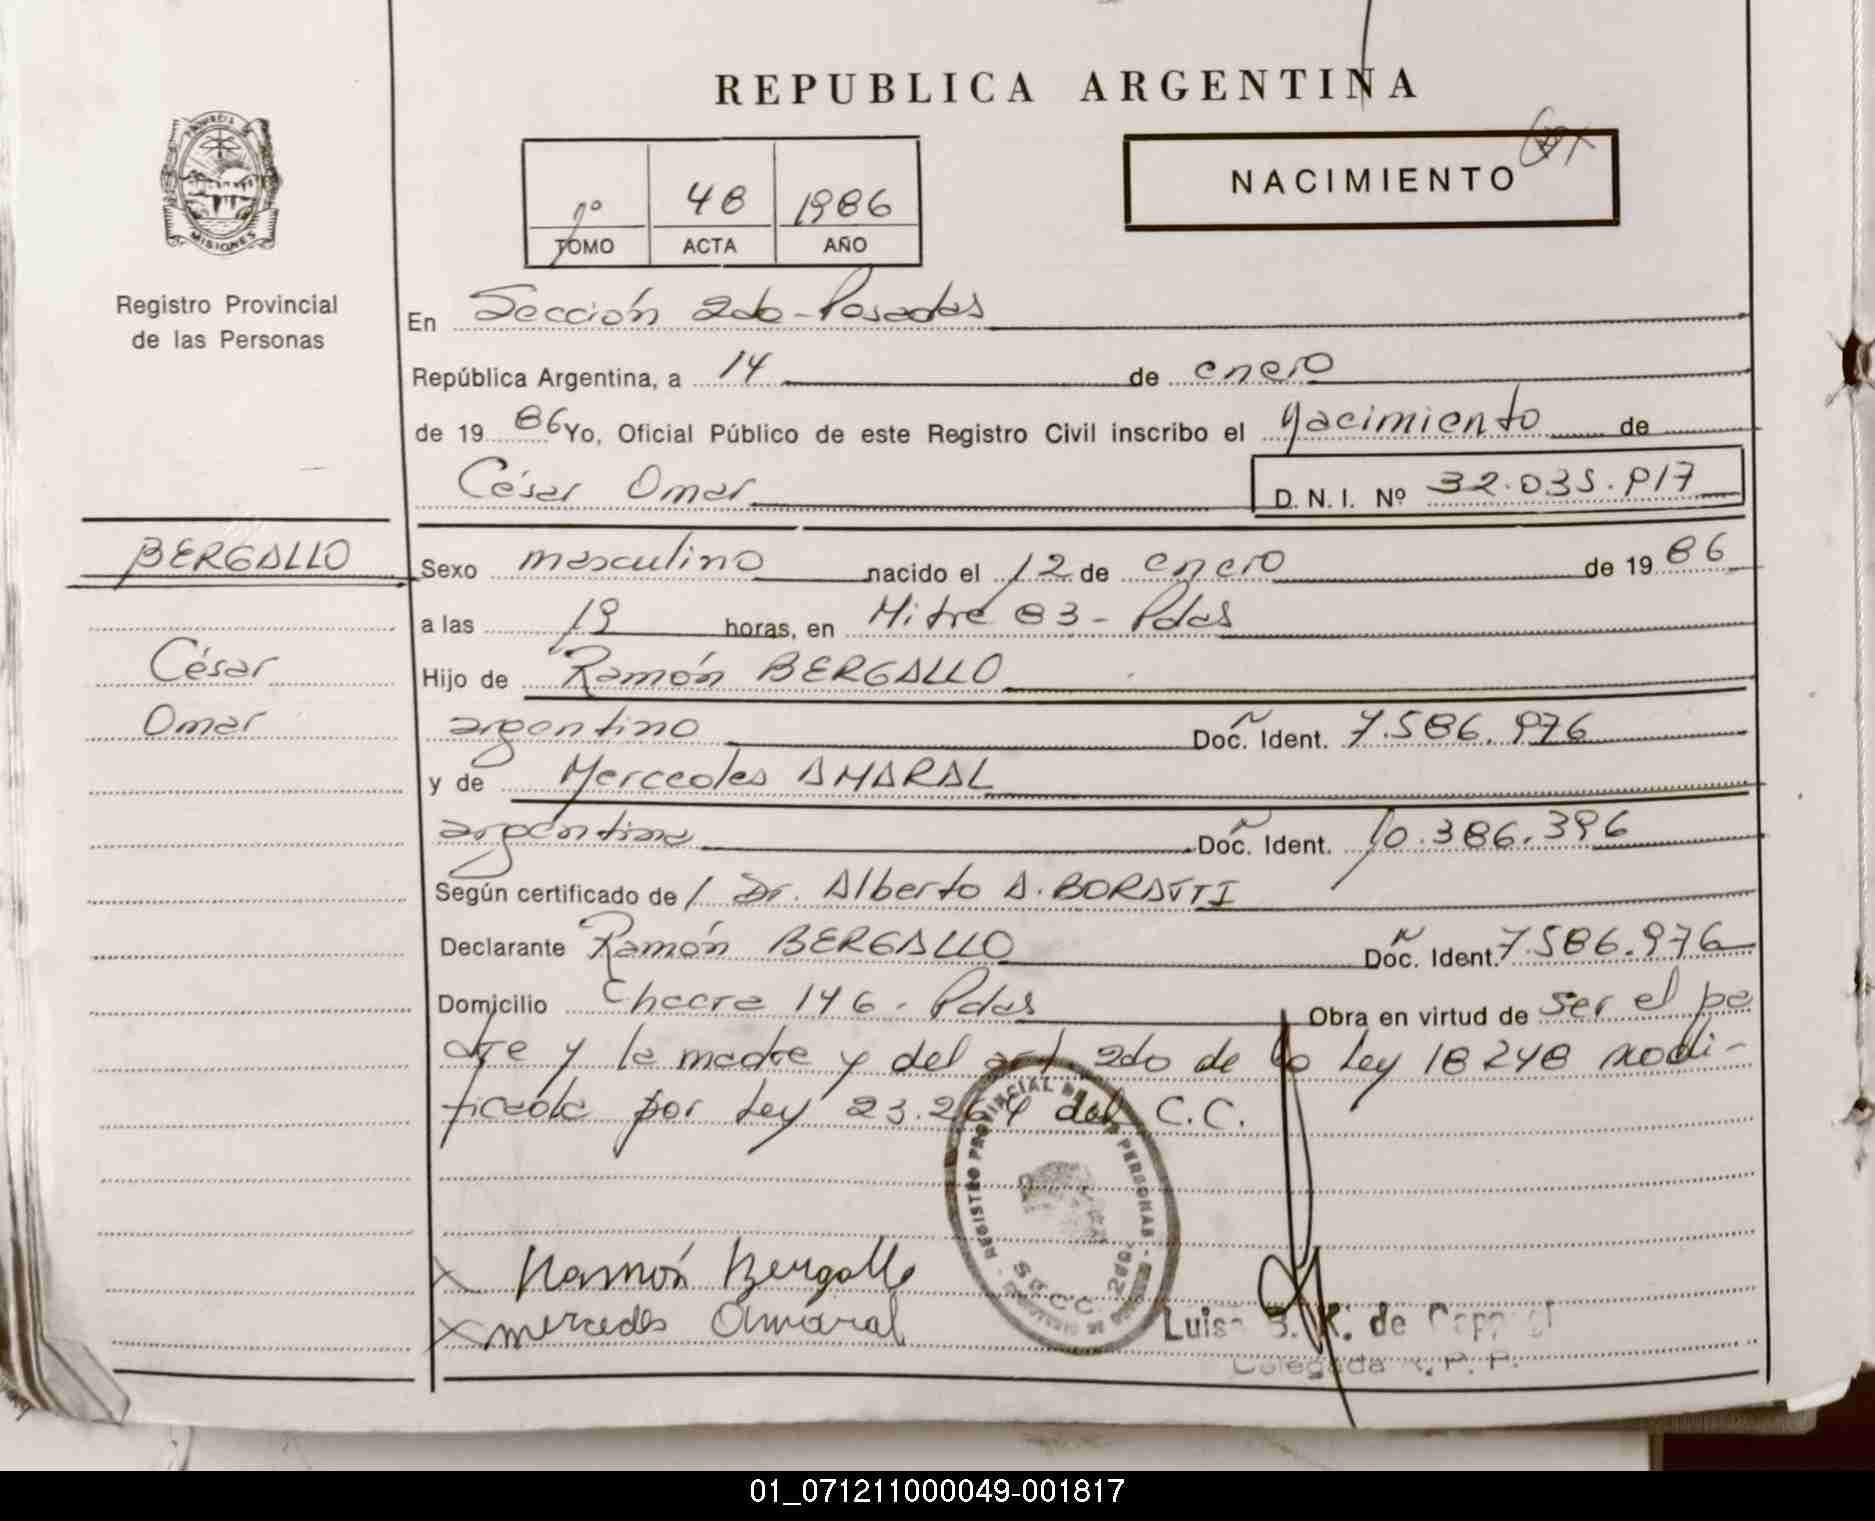 REPUBLICA ARGENTINA
PROVINCIA DE
MISIONES
Registro Provincial
de las Personas
1º 48 1986
TOMO ACTA AÑO
NACIMIENTO
En Sección 2da - Posadas
República Argentina, a 14 de enero
de 19 86 Yo, Oficial Público de este Registro Civil inscribo el Nacimiento de
César Omar D. N. I. Nº 32.035.917
BERGALLO
César
Omar
Sexo masculino nacido el 12 de enero de 19 86
a las 19 horas, en Mitre 83 - Pdas
Hijo de Ramón BERGALLO
argentino Doc. Ident. 7.586.976
y de Mercedes AMARAL
argentina Doc. Ident. 10.386.396
Según certificado de Dr. Alberto A. BORATTI
Declarante Ramón BERGALLO Doc. Ident. 7.586.976
Domicilio Chacra 146 - Pdas Obra en virtud de ser el pa
dre y la madre y del art 2do de la Ley 18248 modi-
ficada por Ley 23.264 del C.C.
REGISTRO PROVINCIAL DE LAS PERSONAS
SECC. 2da.
Ramón Bergallo
mercedes Amaral
Luisa K. de
Delegada R. P. P.
01_071211000049-001817